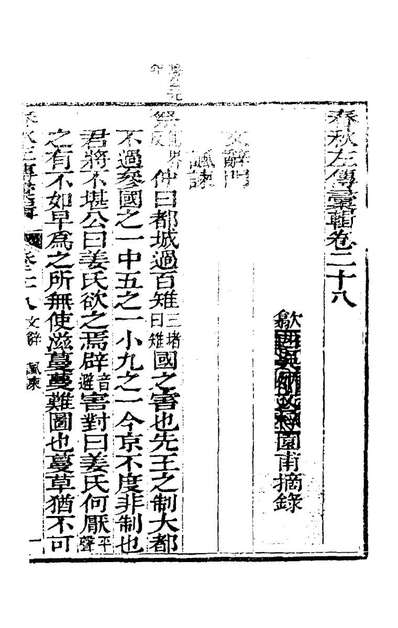 春秋左傳彙輯卷二十八
歙西吳
園甫摘錄
文辭
諷諫
祭
仲曰都城過百雉三堵曰雉國之害也先王之制大都
不過參國之一中五之一小九之一今京不度非制也
君將不堪公曰姜氏欲之焉辟音避害對曰姜氏何厭平聲
之有不如早爲之所無使滋蔓蔓難圖也蔓草猶不可
春秋左傳彙輯
卷二十八 文辭 諷諫
一